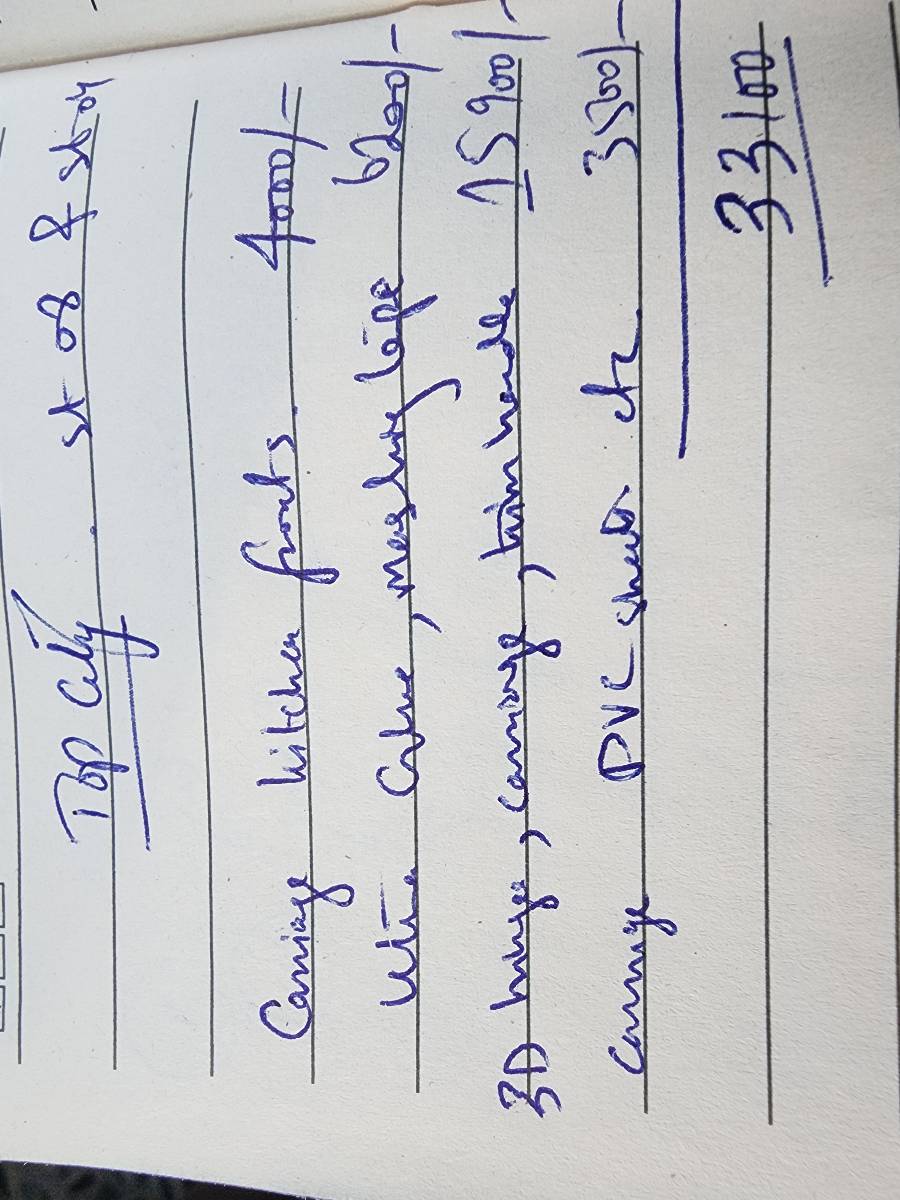 Top City . st 08 & st 04
Carriage kitchen fronts. 4000/-
Glue, Mashing tape 6200/-
3D hinge, carriage, trim handle 15900/-
Carriage PVC sheets etc 3500/-
33100